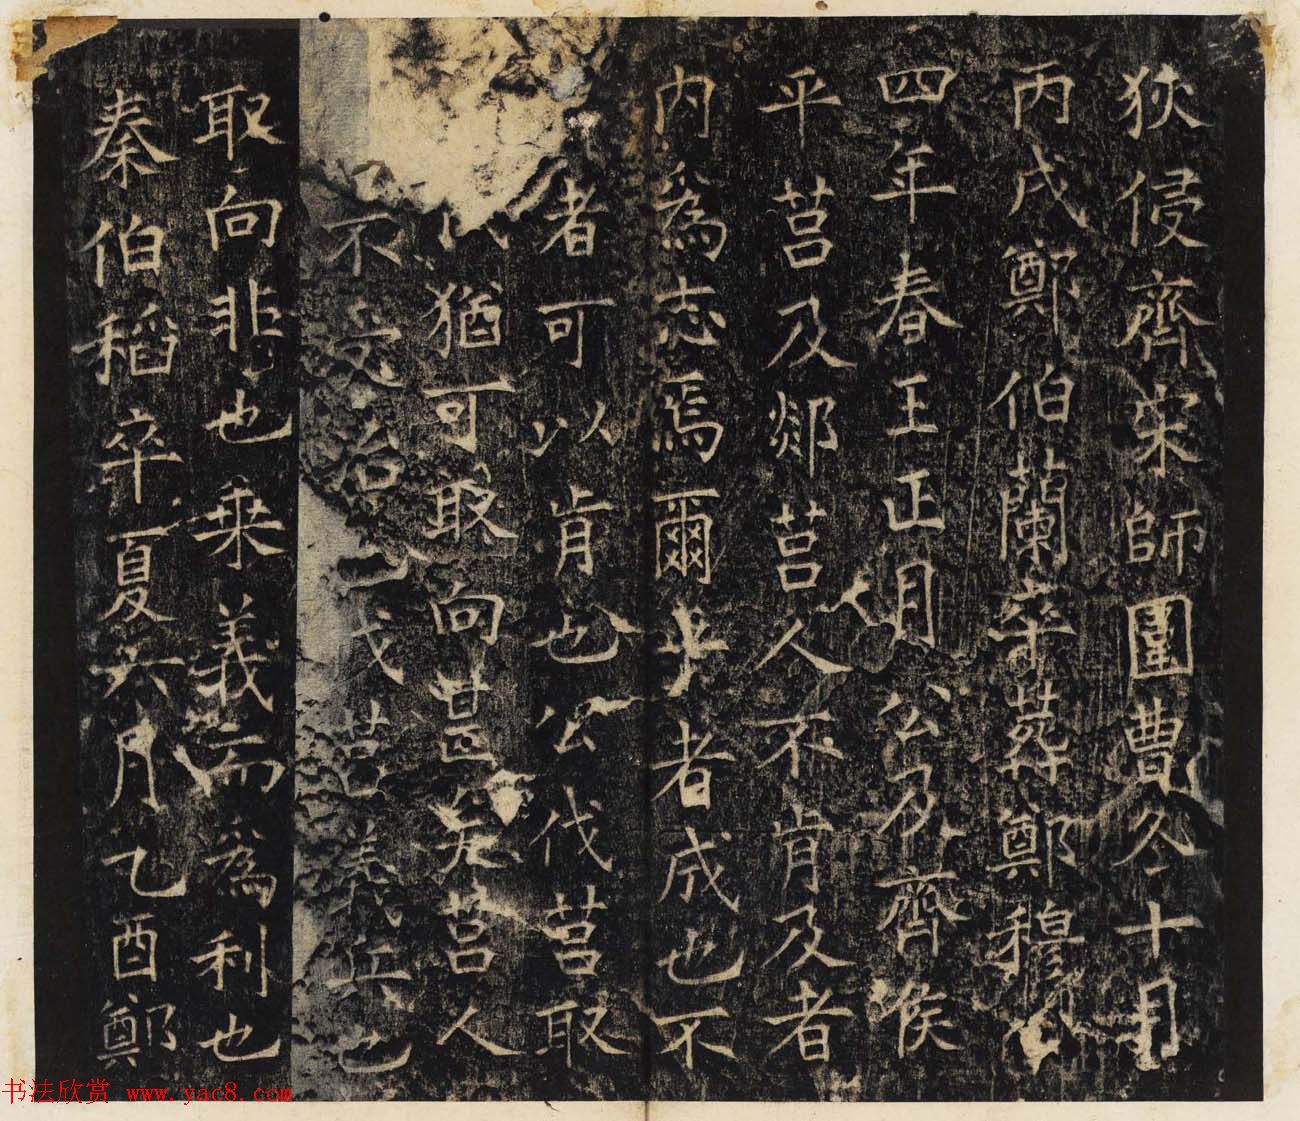 狄侵齊宋師圍曹冬十月
丙戌鄭伯蘭卒葬鄭穆公
四年春王正月公及齊侯
平莒及郯莒人不肯及者
内爲志焉爾平者成也不
者可以肯也公伐莒取
猶可取向甚矣莒人
不受治也伐莒義兵也
取向非也乗義而爲利也
秦伯稻卒夏六月乙酉鄭
书法欣赏 www.yac8.com